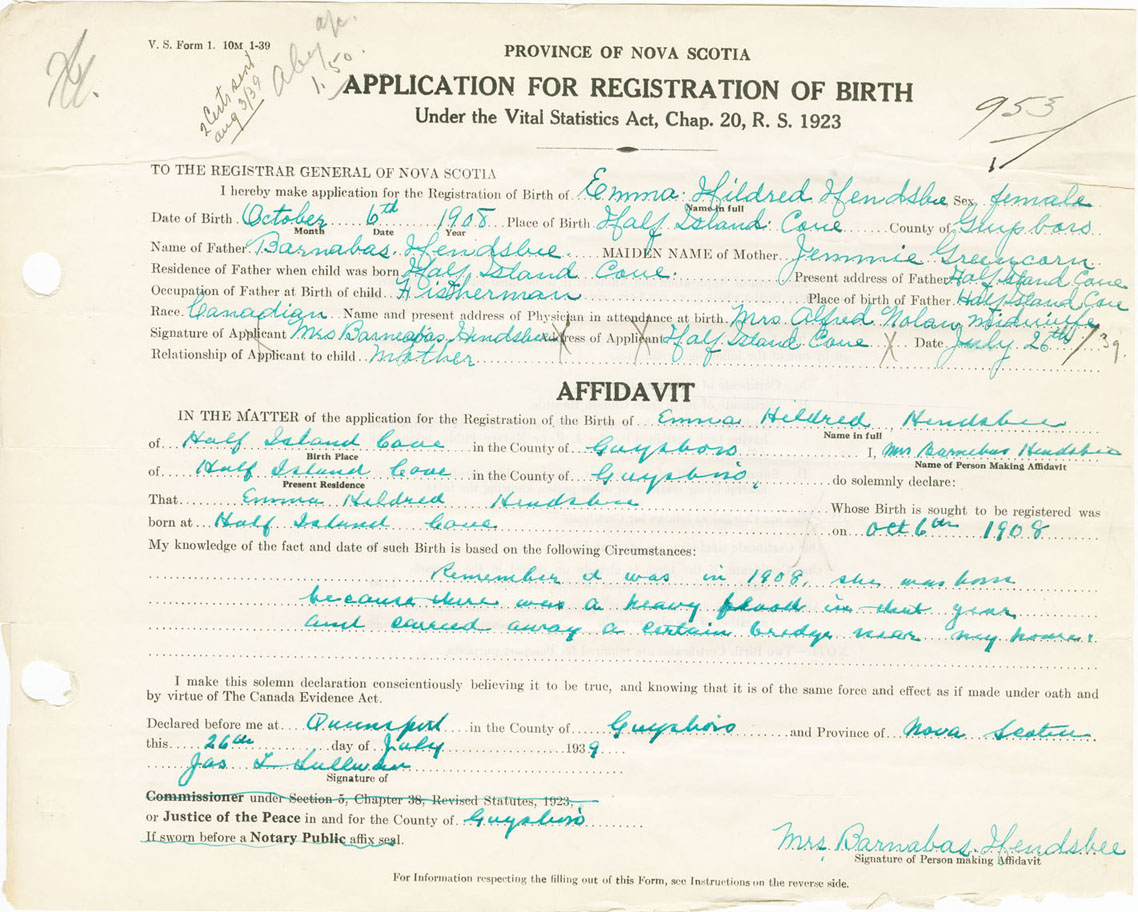 V. S. Form 1. 10M 1-39
2 Certs sent
aug 3/39
1.50
953
PROVINCE OF NOVA SCOTIA
APPLICATION FOR REGISTRATION OF BIRTH
Under the Vital Statistics Act, Chap. 20, R. S. 1923
TO THE REGISTRAR GENERAL OF NOVA SCOTIA
I hereby make application for the Registration of Birth of Emma Hildred Hendsbee Sex female
Name in full
Date of Birth October 6th 1908 Place of Birth Half Island Cove County of Guysboro
Month Date Year
Name of Father Barnabas Hendsbee MAIDEN NAME of Mother Jemmie Greencorn
Residence of Father when child was born Half Island Cove. Present address of Father Half Island Cove
Occupation of Father at Birth of child Fistherman Place of birth of Father Half Island Cove
Race Canadian Name and present address of Physician in attendance at birth. Mrs. Alfred Nolan, Midwife
Signature of Applicant Mrs Barnabas Hendsbee Address of Applicant Half Island Cove Date July 26th/39.
Relationship of Applicant to child Mother
AFFIDAVIT
IN THE MATTER of the application for the Registration of the Birth of Emma Hildred Hendsbee
Name in full
of Half Island Cove in the County of Guysboro I, Mrs Barnebas Hendsbee
Birth Place Name of Person Making Affidavit
of Half Island Cove in the County of Guysboro, do solemnly declare:
Present Residence
That Emma Hildred Hendsbee Whose Birth is sought to be registered was
born at Half Island Cove on Oct 6th 1908
My knowledge of the fact and date of such Birth is based on the following Circumstances:
Remember it was in 1908, she was born
because there was a heavy flood in that year
and carried away a certain bridge near my home.
I make this solemn declaration conscientiously believing it to be true, and knowing that it is of the same force and effect as if made under oath and
by virtue of The Canada Evidence Act.
Declared before me at Queensport in the County of Guysboro and Province of Nova Scotia
this 26th day of July 1939
Jas L Sullivan
Signature of
Commissioner under Section 5, Chapter 38, Revised Statutes, 1923,
or Justice of the Peace in and for the County of Guysboro
If sworn before a Notary Public affix seal.
Mrs. Barnabas Hendsbee
Signature of Person making Affidavit
For Information respecting the filling out of this Form, see Instructions on the reverse side.